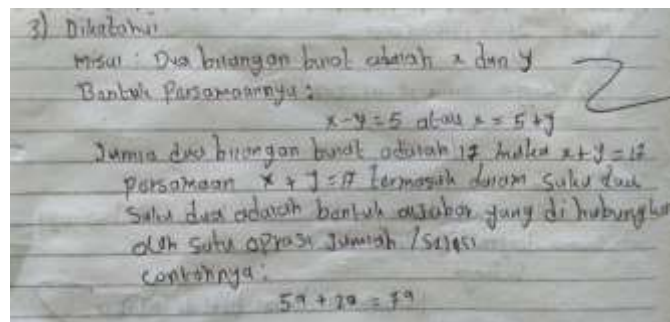 3) Diketahui
misal : Dua bilangan bulat adalah x dan y
Bentuk Persamaannya :
x-y=5 atau x = 5+y
Jumla dua bilangan bulat adalah 17 maka x+y=17
persamaan x + y = 17 termasuk dalam suku dua
Suku dua adalah bentuk aljabar yang di hubungkan
oleh satu oprasi Jumlah / Selisi
contohnya :
5a + 2a = 7a